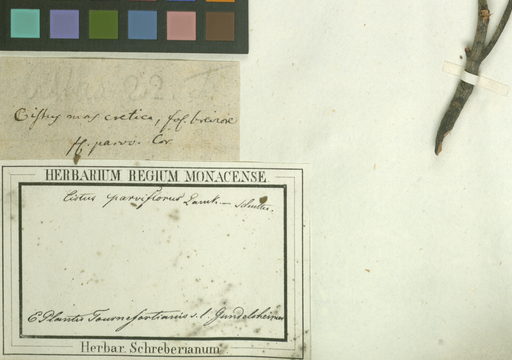 Cistus mas cretica, fol. breviore
fl. parvo. Cor
HERBARIUM REGIUM MONACENSE.
Cistus parviflorus Lamk. — Schultes.
E Plantis Tournefortianis s. l. Gundelsheimer
Herbar. Schreberianum